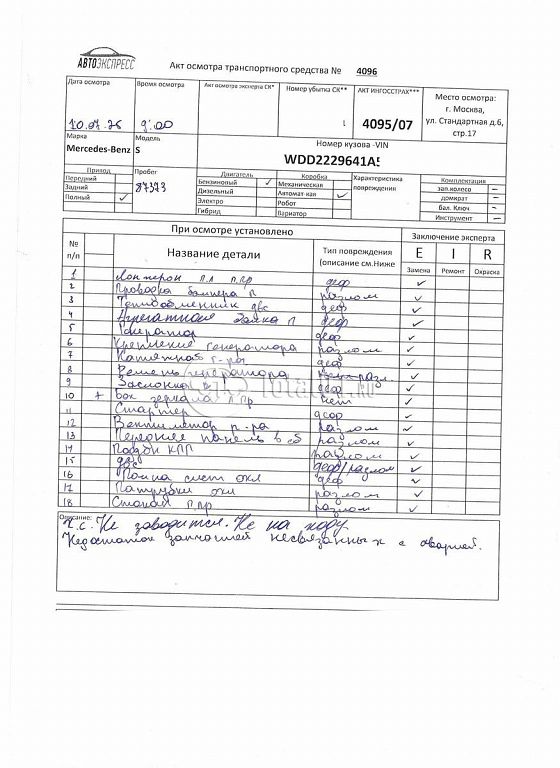 АВТОЭКСПРЕСС
Акт осмотра транспортного средства № 4096
Дата осмотра
Время осмотра
Акт осмотра эксперта СК*
Номер убытка СК**
АКТ ИНГОССТРАХ***
Место осмотра:
г. Москва,
ул. Стандартная д.6,
стр.17
10.07.26
9:00
4095/07
Марка
Модель
Номер кузова -VIN
Mercedes-Benz
S
WDD2229641A
Привод
Пробег
Двигатель
Коробка
Характеристика повреждения
Комплектация
Передний
87373
Бензиновый ✓
Механическая
зап.колесо –
Задний
Дизельный
Автомат-кая ✓
домкрат –
Полный ✓
Электро
Робот
бал. Ключ –
Гибрид
Вариатор
Инструмент –
При осмотре установлено
Заключение эксперта
№ п/п
Название детали
Тип повреждения (описание см.Ниже
E I R
Замена Ремонт Окраска
1 Лонжерон п.л п.пр деф ✓
2 Проводка бампера п разлом ✓
3 Теплообменник двс деф ✓
4 Агрегатная балка п деф ✓
5 Генератор деф ✓
6 Крепление генератора разлом ✓
7 Натяжная г-ра деф ✓
8 Ремень генератора ✓
9 Заслонка деф ✓
10 + Бок зеркала п.пр нет ✓
11 Стартер деф ✓
12 Вентилятор р-ра разлом ✓
13 Передняя панель в сб разлом ✓
14 Поддон КПП разлом ✓
15 двс деф/разлом ✓
16 Помпа сист охл деф ✓
17 Патрубки охл разлом ✓
18 п.пр разлом ✓
Описание:
т.с. Не заводится. Не на ходу.
Недостаток запчастей несвязанных с аварией.